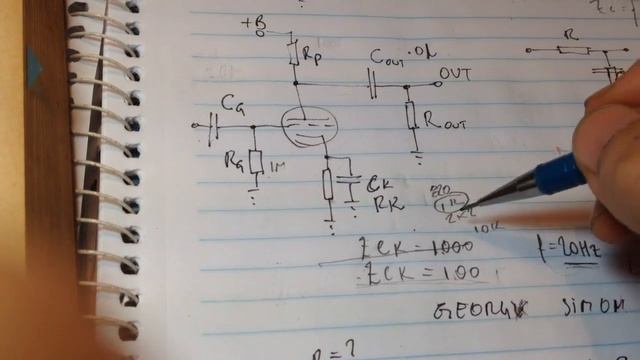 +B
RP
COUT .01
OUT
R
CG
ROUT
RG 1M
CK
RK
520
1K
2K2
10K
ZCK = 1000
f = 20Hz
ZCK = 100
GEORGY SIMON
R = ?